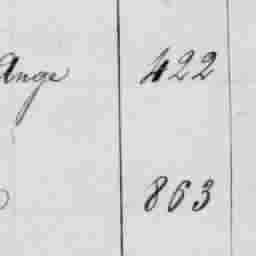 Ange 422
863